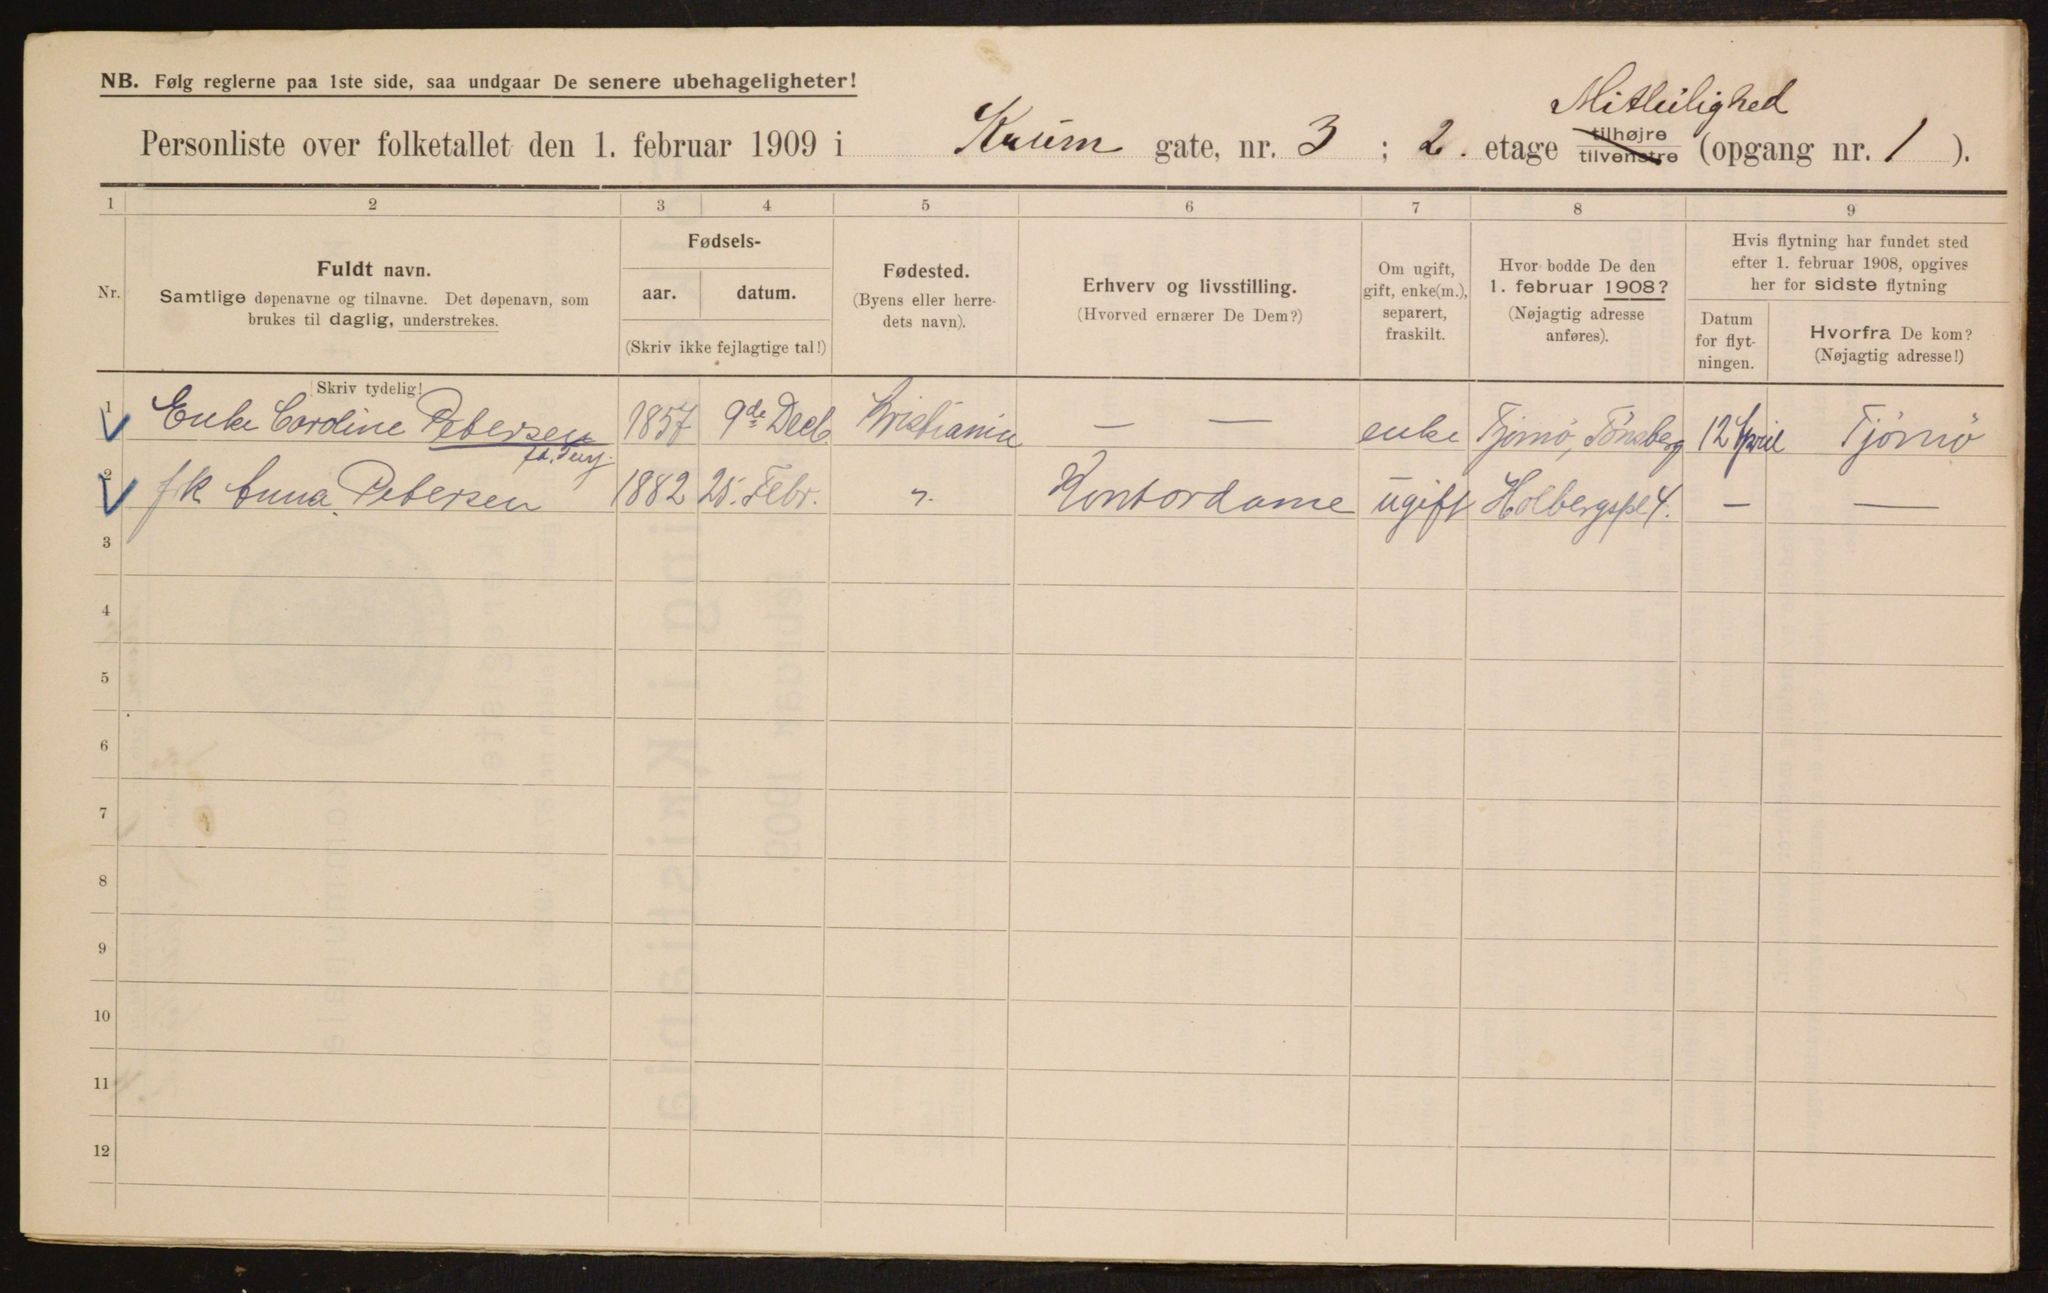 NB. Følg reglerne paa 1ste side, saa undgaar De senere ubehageligheter!
Mitleilighed
Personliste over folketallet den 1. februar 1909 i Krum gate, nr. 3 ; 2. etage tilhøjre tilvenstre (opgang nr. 1 ).
1 2 3 4 5 6 7 8 9
Nr.
Fuldt navn.
Samtlige døpenavne og tilnavne. Det døpenavn, som
brukes til daglig, understrekes.
Fødsels-
aar. datum.
(Skriv ikke fejlagtige tal!)
Fødested.
(Byens eller herre-
dets navn).
Erhverv og livsstilling.
(Hvorved ernærer De Dem?)
Om ugift,
gift, enke(m.),
separert,
fraskilt.
Hvor bodde De den
1. februar 1908?
(Nøjagtig adresse
anføres).
Hvis flytning har fundet sted
efter 1. februar 1908, opgives
her for sidste flytning
Datum
for flyt-
ningen.
Hvorfra De kom?
(Nøjagtig adresse!)
Skriv tydelig!
1 Enke Caroline Petersen 1857 9de Decb Kristiania — — enke Tjømø, Tønsberg 12 April Tjømø
2 frk Anna Petersen 1882 25. Febr. " Kontordame ugift Holbergspl 4. — —
3
4
5
6
7
8
9
10
11
12